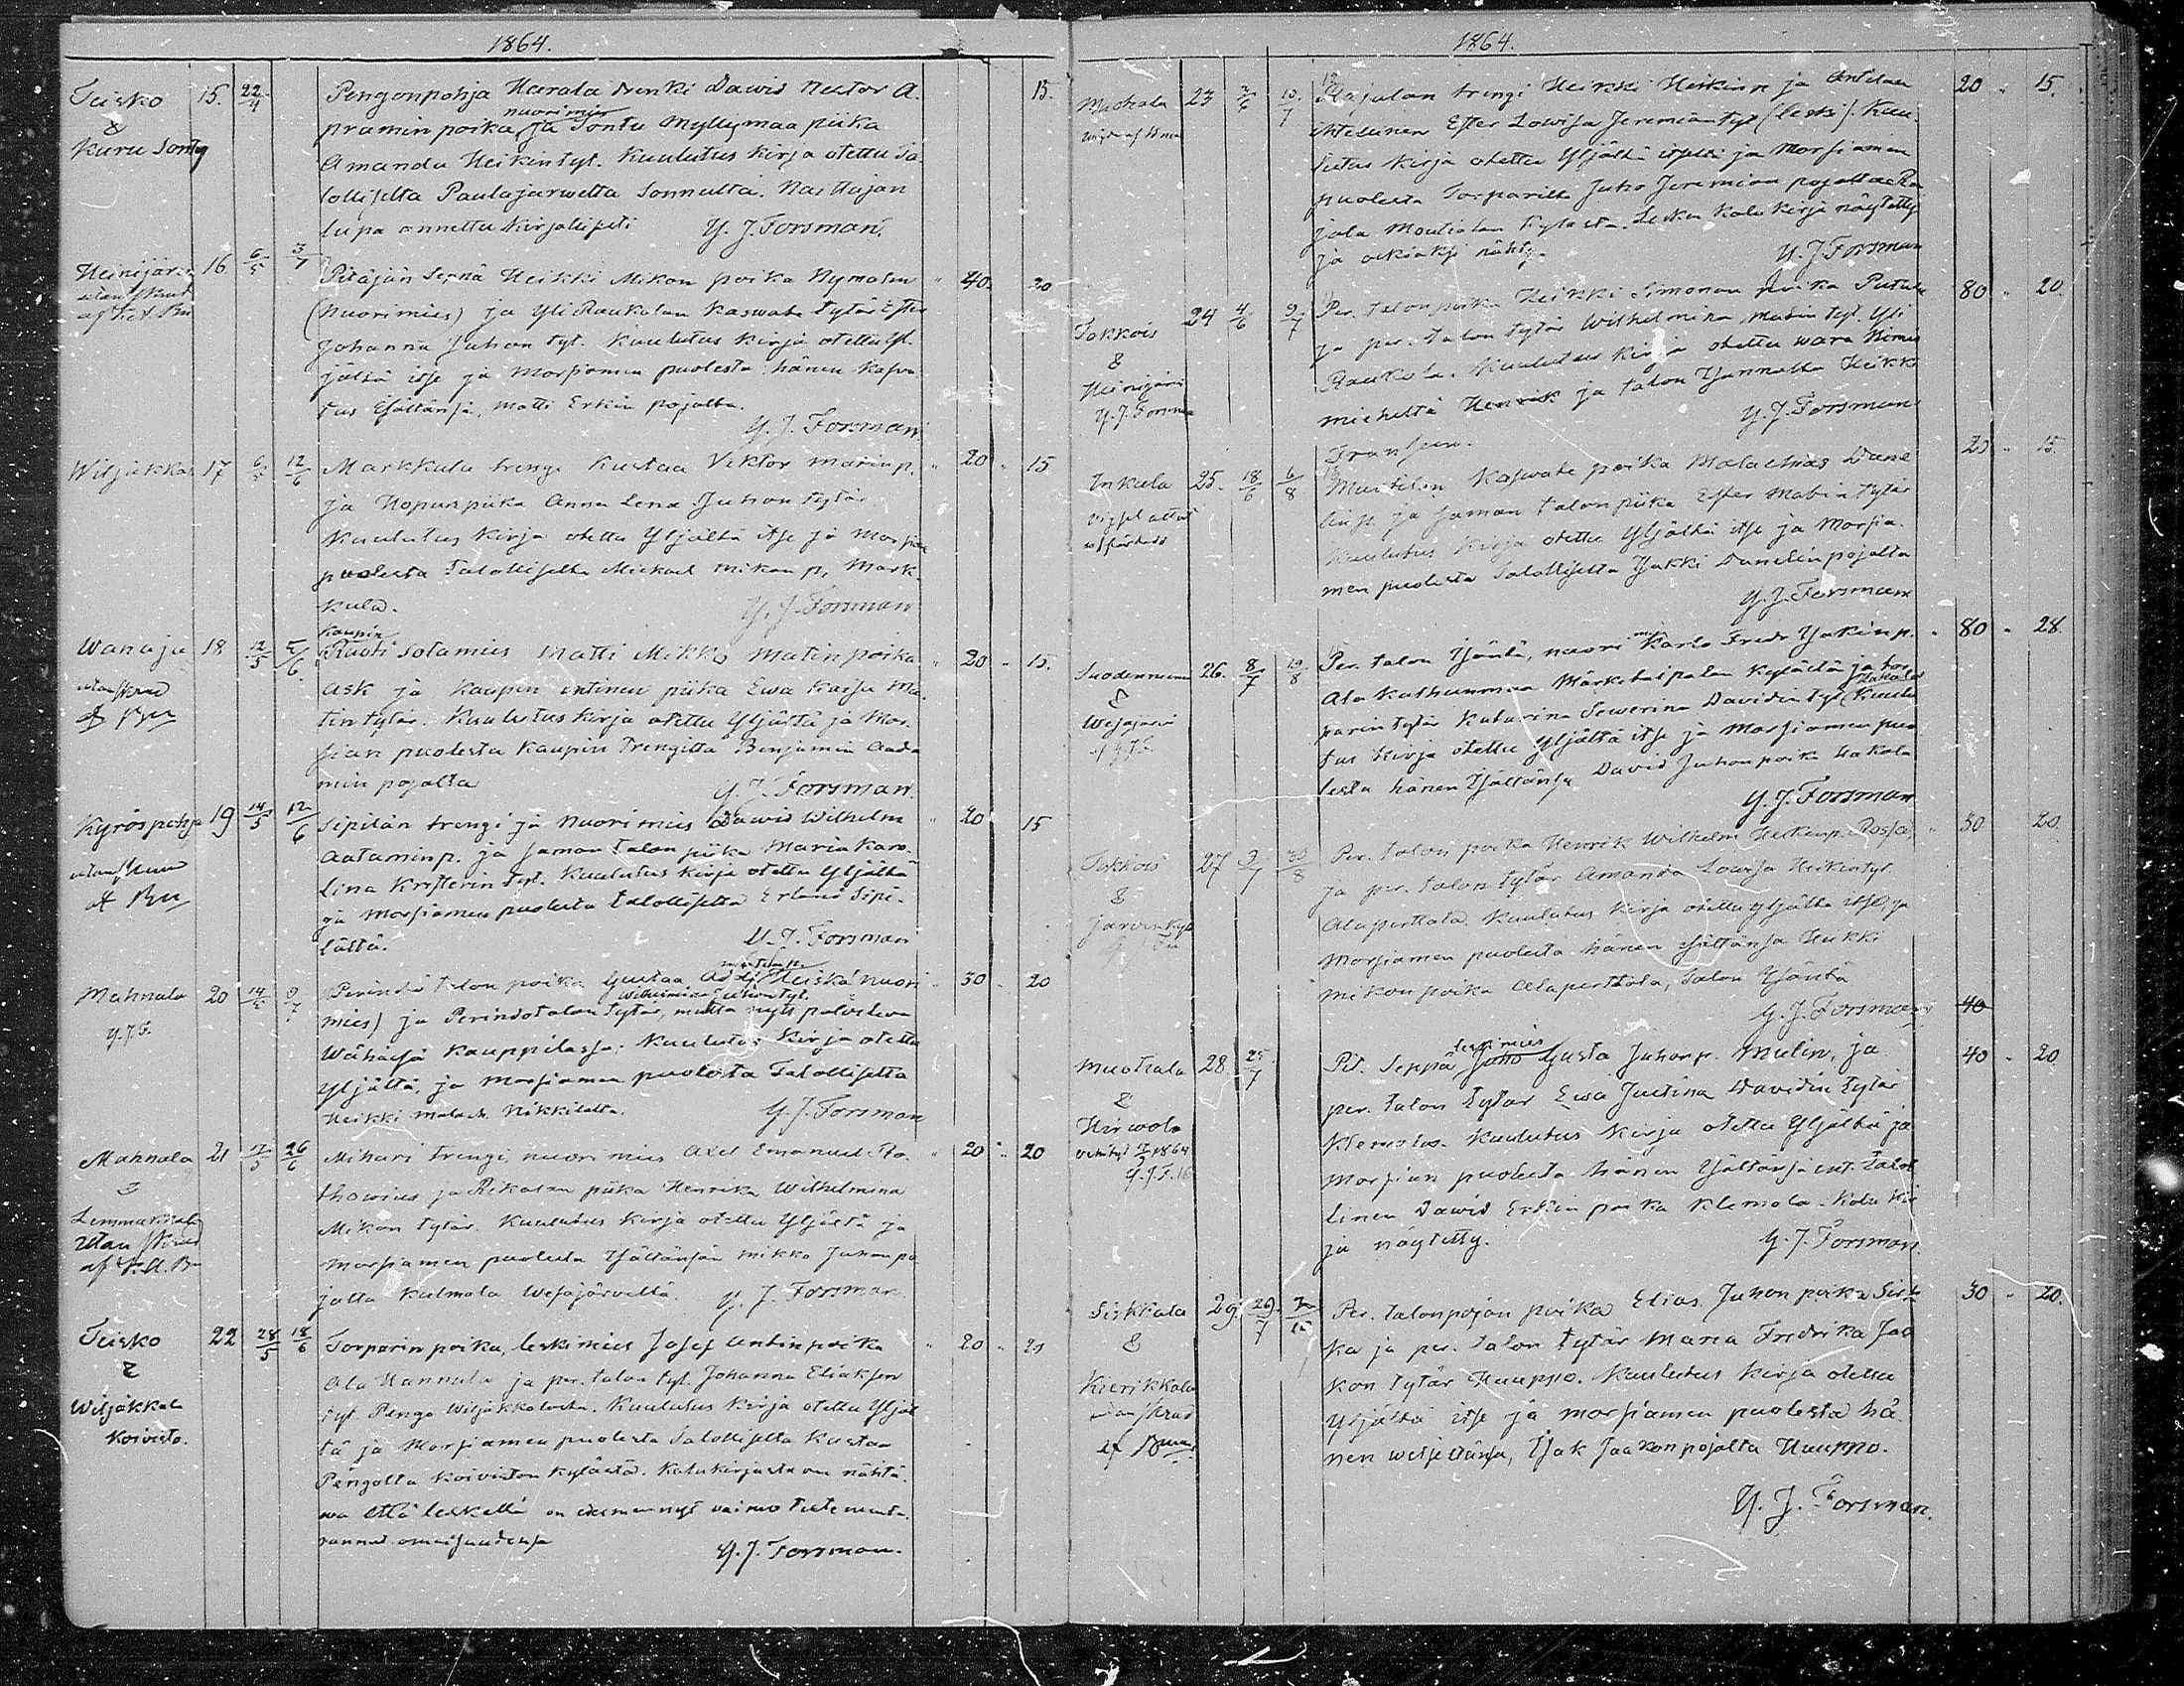 1864.
Teisko 15. 22/4 Pengonpohja Heerala trenki Dawid Nestor A. 15.
&
nuorimies
pramin poika, ja Sontu Myllymaa piika
Kuru Sontu
Amanda Heikintyt. Kuulutus kirja otettu Ta
lolliselta Paulajarwelta Sonnulta. Naittajan
lupa annettu kirjalisesti Y. J. Forsman.
Heinijärw 16 6/5 3/7 Pitäjän Seppä Heikki Mikon poika Nymalm 40. 20
utan skrud
(nuorimies) ja Yli Raukolan kaswate tytär Ester
Johanna Juhon tyt. Kuulutus kirja otettu Yl-
jältä itse ja Morsiamen puolesta hänen kaswa
tus Isältänsä, Matti Erkin pojalta.
Y. J. Forsman
Wiljakkal 17 6/5 12/6 Markkula trengi Kustaa Viktor Matinp. 20 15
ja Hopun piika Anna Lena Juhon tytär
Kuulutus kirja otettu Yljältä itse ja Morsiam
puolesta Talolliselta Mickael Mikon p. Mark-
kula. Y. J. Forsman
Kaupin
Wanaja 18 12/5 5/6. Ruoti Sotamies Matti Mikko Matinpoika 20 15.
utan skrud
Ask ja Kaupin entinen piika Ewa Kaisa Ma-
tintytär. Kuulutus kirja otettu Yljältä ja Mor-
sian puolesta Kaupin Trengiltä Benjamin Aada
min pojalta Y. J. Forsman
Kyröspohja 19 14/5 12/6 Sipilän trengi ja Nuorimies Dawid Wilhelm 20 15
utan skrud
Aataminp. ja saman talon piika Maria Karo-
lina Kristerin tyt. Kuulutus kirja otettu Yljältä
ja Morsiamen puolesta talolliselta Erland Sipi-
lältä. Y. J. Forsman
Mahnala 20 14/5 9/7 Perindö talon poika Gustaa Adolf Heiska nuori 30 20
Y. J. F.
Wilhelmina Juhontyt.
mies) ja Perindötalon Tytär, mutta nytt palveleva
Wähässä Kauppilassa; Kuulutus kirja otettu
Yljältä, ja Morsiamen puolesta Talolliselta
Heikki Malach. Nikkilältä. Y. J. Forsman
Mahnala 21 17/5 26/6 Mihari trengi, nuori mies Axel Emanuel Ro- 20 20
&
thowius ja Rekolan piika Henrika Wilhelmina
Lemmakkala
Mikon tytär. Kuulutus kirja otettu Yljältä ja
utan skrud
Morsiamen puolesta Isältänsä Mikko Juhon po
jalta Kulmala Wesajärveltä. Y. J. Forsman
Teisko 22 28/5 18/6 Torparin poika, leskimies Josef Antinpoika 20 20
&
Ala Hannula ja per. talon tyt. Johanna Eliaksen
Wiljakkal
tyt. Pengo Wiljakkalasta. Kuulutus kirja otettu Yljäl
Koivisto.
tä ja Morsiamen puolesta Talolliselta Kustaa
Pengolta Koiviston kylästä. Kalukirjasta on nähtä-
wä että leskellä on edesmennyt vaimo testamente-
rannut omaisuudensa Y. J. Forsman.
1864.
Muotiala 23 2/6 10/7 Rajalan trengi Heikki Heikinp ja Antilan 20 15.
ihtellinen Ester Lowisa Jeremiantyt (leski). Kuu-
lutus kirja otettu Yljältä itseltä ja Morsiamen
puolesta Torparilta Juho Jeremian pojalta Ra
jala Moutialan kylästä. Lesken kalu kirja näytetty
ja oikiaksi nähty. Y. J. Forsman
Tokkois 24 4/6 9/7 Per. talon poika Heikki Simonan poika Putula 80 20.
&
ja per. talon tytär Wilhelmina Matin tyt. Yli
Heinijärvi
Raukola. Kuulutus kirja otettu wara Nimis
Y. J. Forsman
mieheltä Henrik ja talon Isännältä Heikki
Fransen. Y. J. Forsman
Inkula 25. 18/6 6/8 Muotilan Kaswate poika Malachias Dane 20 15.
linp. ja saman talon piika Ester Matin tytär
Kuulutus kirja otettu Yljältä itse ja Morsia-
men puolesta Talolliselta Jakki Danelin pojalta
Y. J. Forsman
Suodenniemi 26. 8/7 19/8 Per. talon Isäntä, nuori mies Karlo Fredr Jakinp. 80 28.
&
Ala Kulhunmaa Märkelaipalan kylästä ja tor-
Wesajärvi
parin tytär Katarina Sewerina Davidin tyt. Hakala Kuulu
tus kirja otettu Yljältä itse ja Morsiamen puo
lesta hänen Isältänsä David Juhonpoika Hakala
Y. J. Forsman
Tokkois 27 9/7 30/8 Per. talon poika Henrik Wilhelm Heikinp. Rossa, 30 20.
&
ja per. talon tytär Amanda Lowisa Heikintyt.
Järvenkyl
Alaperttala. Kuulutus kirja otettu yljältä itse, ja
Morsiamen puolesta hänen Isältänsä Heikki
Mikon poika Alaperttala, Talon Isäntä
Y. J. Forsman 40
Muotiala 28. 25/7 Pit. Seppä leskimies Juho Gusta Juhonp. Malin, ja 40 20.
&
per. talon tytär Ewa Justina Davidin tytär
Hirwola
Klemola. Kuulutus kirja otettu Yljältä ja
1864
Y. J. F.
Morsian puolesta hänen Isältänsä ent. talol
linen Dawid Erkin poika Klemola. Kalu kir
ja näytetty. Y. J. Forsman.
Sirkkala 29. 29/7 Per. talonpojan poika Elias Juhon poika Sirk 30 20.
&
ka ja per. talon tytär Maria Fredrika Jaa
Kierikkala
kon tytär Huuppo. Kuulutus kirja otettu
utan skrud
Yljältä itse ja morsiamen puolesta hä-
nen weljeltänsä, Isak Jaakonpojalta Huuppo.
Y. J. Forsman.